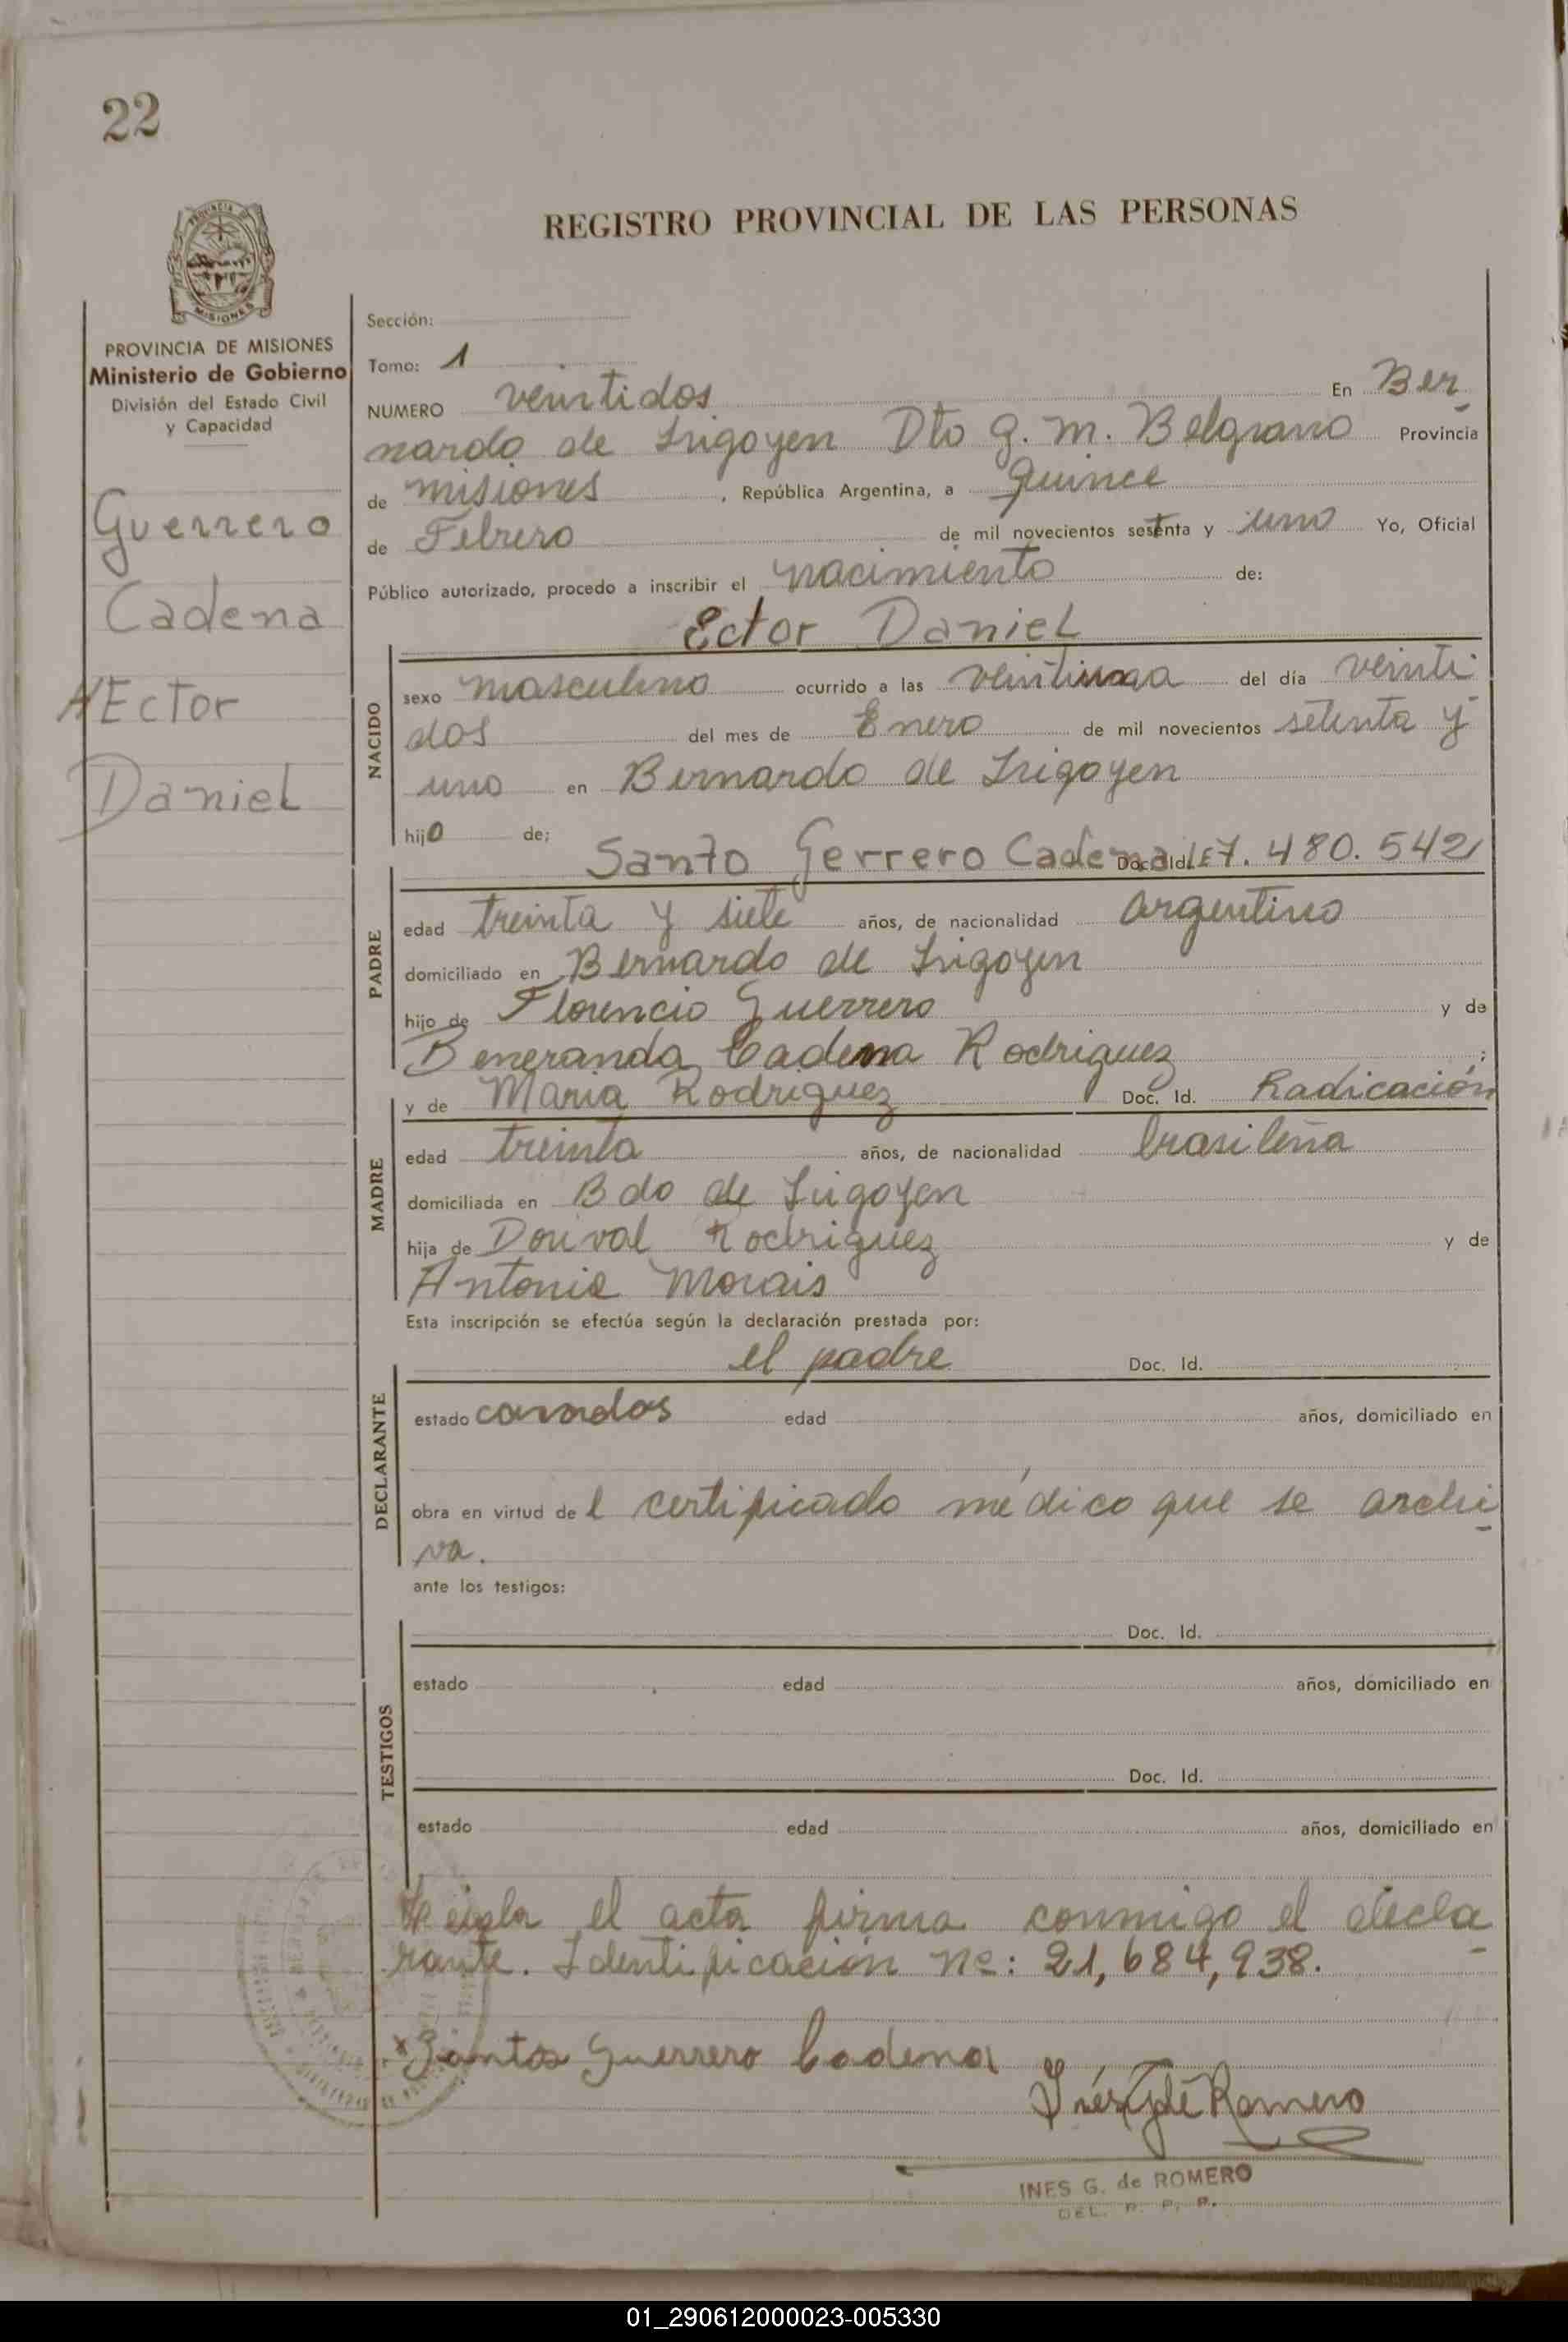 22
REGISTRO PROVINCIAL DE LAS PERSONAS
PROVINCIA DE
MISIONES
PROVINCIA DE MISIONES
Ministerio de Gobierno
División del Estado Civil
y Capacidad
Guerrero
Cadena
HEctor
Daniel
Sección:
Tomo: 1
NUMERO veintidos En Ber-
nardo de Irigoyen Dto G. M. Belgrano Provincia
de misiones, República Argentina, a quince
de Febrero de mil novecientos setenta y uno Yo, Oficial
Público autorizado, procedo a inscribir el nacimiento de:
Ector Daniel
NACIDO
sexo masculino ocurrido a las del día veinti-
dos del mes de Enero de mil novecientos setenta y
uno en Bernardo de Irigoyen
hijo de;
Santo Gerrero Cadena Doc. Id. LE 7.480.542
PADRE
edad treinta y siete años, de nacionalidad argentino
domiciliado en Bernardo de Irigoyen
hijo de Florencio Guerrero y de
Beneranda Cadena Rodriguez ;
y de Maria Rodriguez Doc. Id. Radicación
MADRE
edad treinta años, de nacionalidad brasileña
domiciliada en Bdo de Irigoyen
hija de Dorival Rodriguez y de
Antonia Morais
Esta inscripción se efectúa según la declaración prestada por:
el padre Doc. Id.
DECLARANTE
estado casados edad años, domiciliado en
obra en virtud del certificado médico que se archi-
va.
ante los testigos:
Doc. Id.
TESTIGOS
estado edad años, domiciliado en
Doc. Id.
estado edad años, domiciliado en
Leida el acta firma conmigo el decla-
rante. Identificación Nº: 21,684,938.
x Santos Guerrero Cadena
Inés G de Romero
INES G. de ROMERO
DEL. R. P. P.
01_290612000023-005330